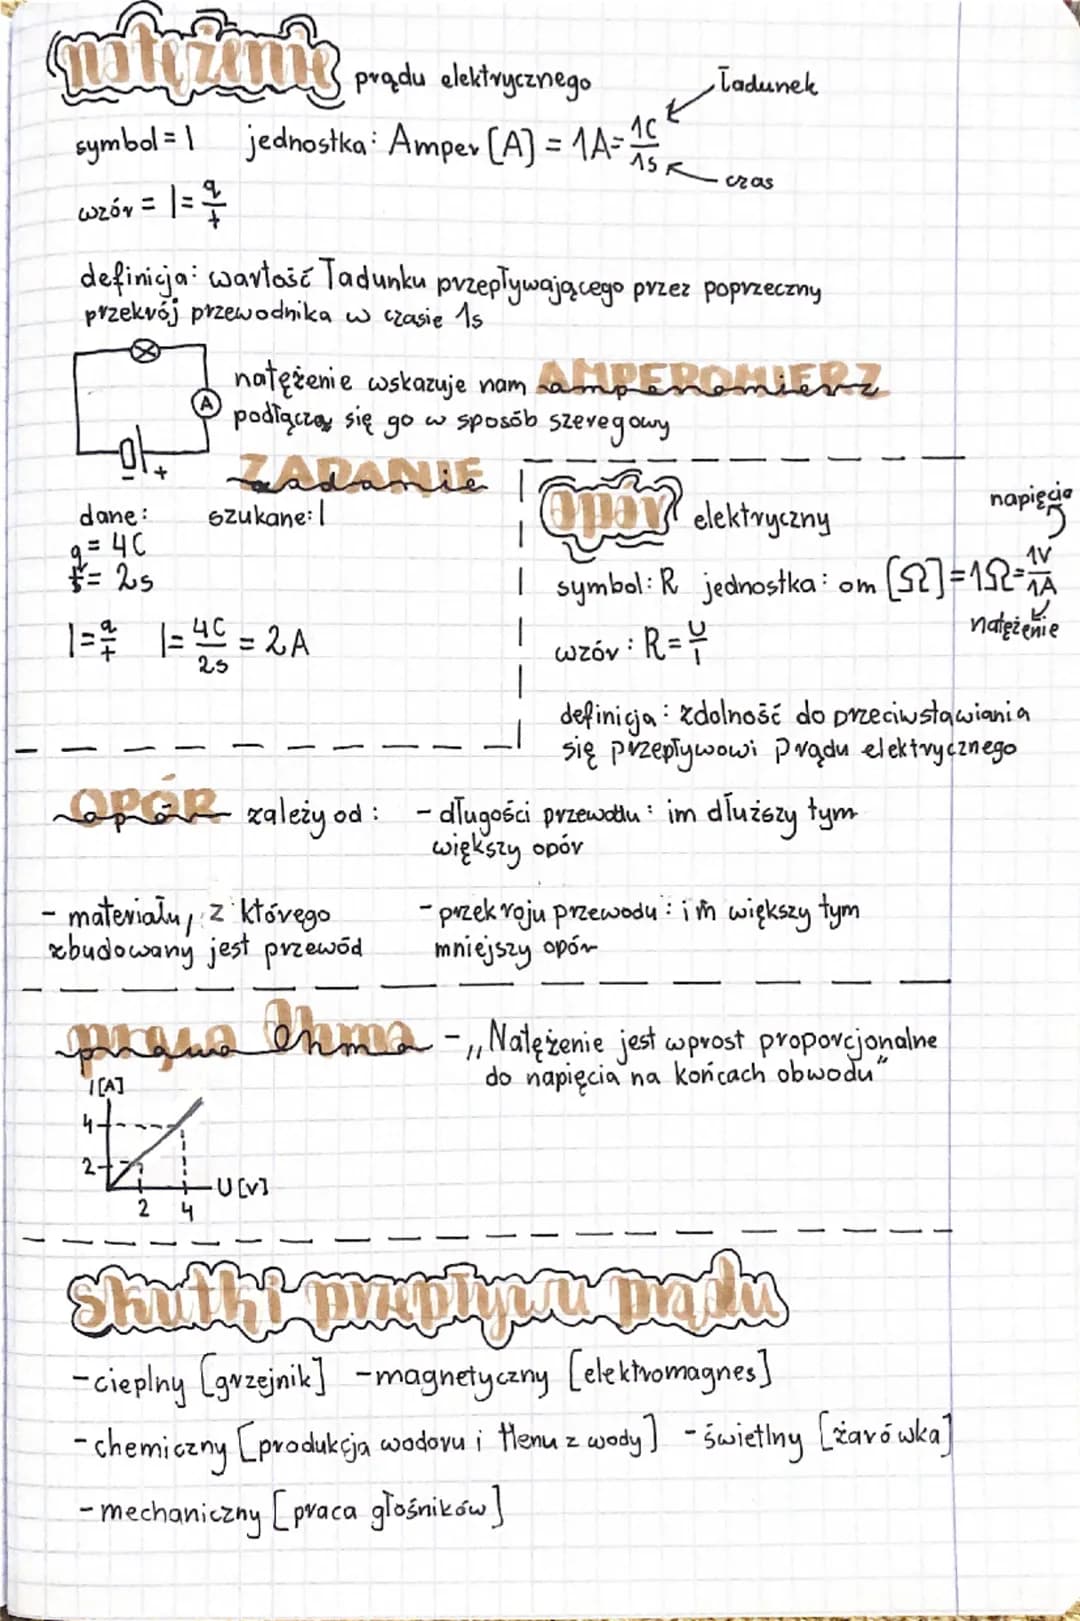 natężenie prądu elektrycznego
ładunek
symbol = I jednostka: Amper [A] = 1A = 1C/1s
czas
wzór = I = q/t
definicja: wartość ładunku przepływającego przez poprzeczny
przekrój przewodnika w czasie 1s
natężenie wskazuje nam AMPEROMIERZ amperomierz
podłącza się go w sposób szeregowy
A
- +
ZADANIE zadanie
dane: szukane: I
q = 4C
t = 2s
I = q/t I = 4C/2s = 2A
opór elektryczny
napięcie
symbol: R jednostka: om [Ω] = 1Ω = 1V/1A
natężenie
wzór: R = U/I
definicja: zdolność do przeciwstawiania
się przepływowi prądu elektrycznego
OPÓR opór zależy od: - długości przewodu: im dłuższy tym
większy opór
- materiału, z którego
zbudowany jest przewód
- przekroju przewodu: im większy tym
mniejszy opór
prawo Ohma - „Natężenie jest wprost proporcjonalne
do napięcia na końcach obwodu"
I [A]
4
2
U [V]
2 4
skutki przepływu prądu
- cieplny [grzejnik] - magnetyczny [elektromagnes]
- chemiczny [produkcja wodoru i tlenu z wody] - świetlny [żarówka]
- mechaniczny [praca głośników]